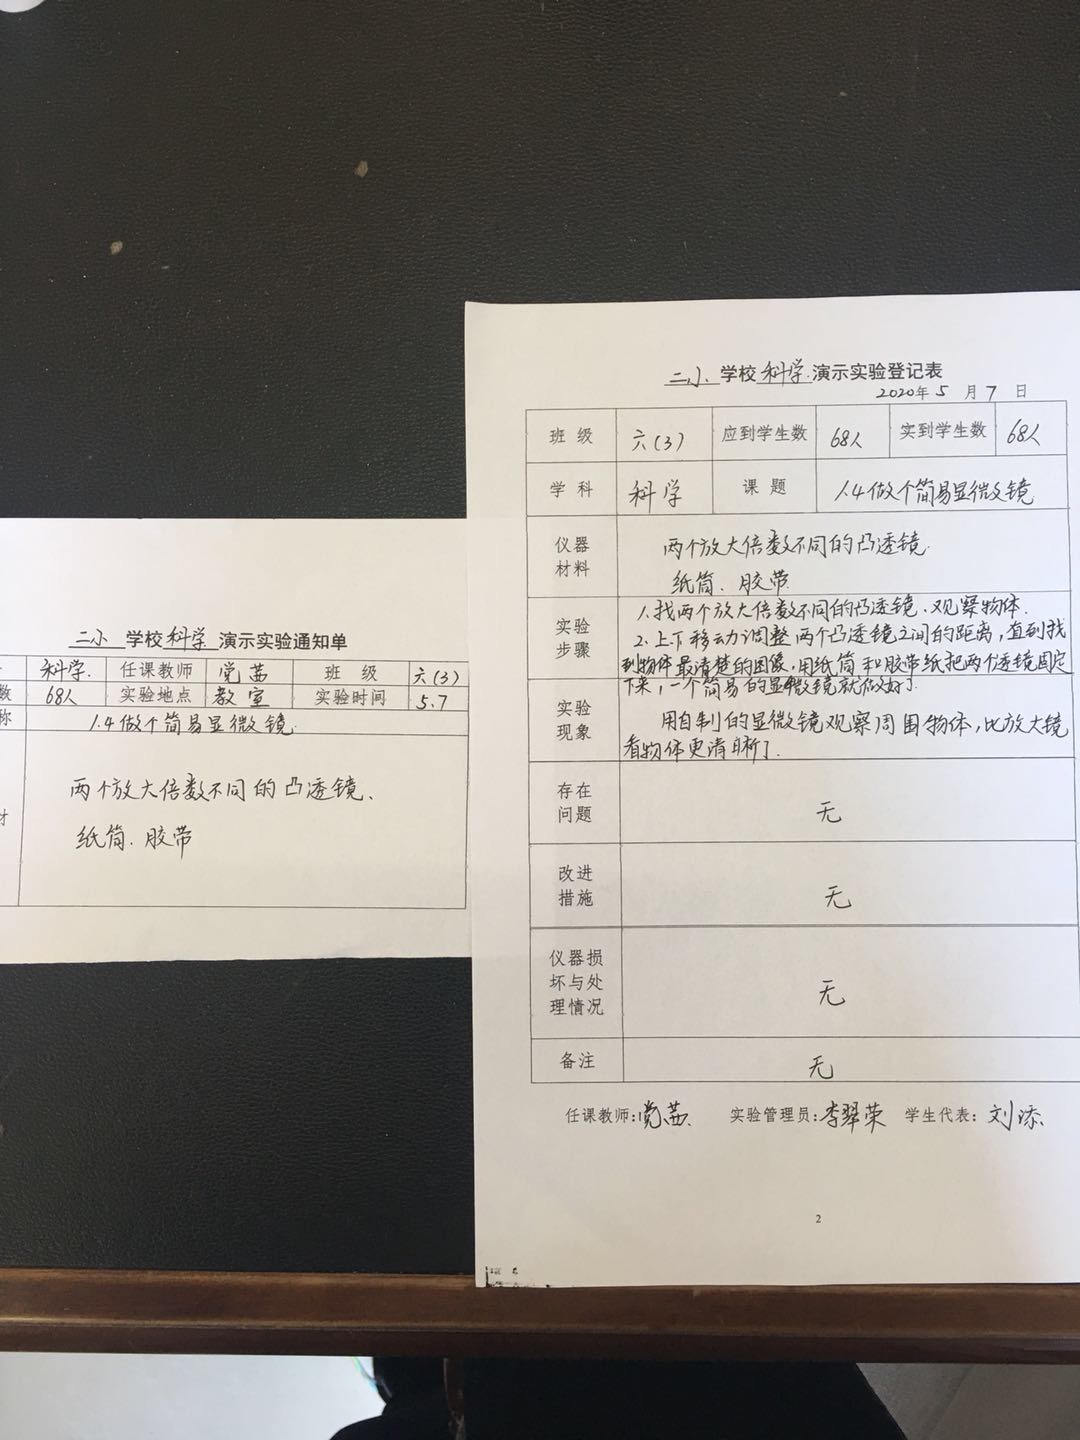 二小 学校 科学 演示实验通知单
科学 任课教师 党茜 班 级 六(3)
数 68人 实验地点 教室 实验时间 5.7
称 1.4做个简易显微镜
两个放大倍数不同的凸透镜、
材
纸筒、胶带
二小 学校 科学 演示实验登记表
2020年 5 月 7 日
班 级 六(3) 应到学生数 68人 实到学生数 68人
学 科 科学 课 题 1.4做个简易显微镜
仪器
材料
两个放大倍数不同的凸透镜.
纸筒、胶带
实验
步骤
1.找两个放大倍数不同的凸透镜、观察物体.
2.上下移动调整两个凸透镜之间的距离,直到找
到物体最清楚的图像,用纸筒和胶带纸把两个透镜固定
下来,一个简易的显微镜就做好了.
实验
现象
用自制的显微镜观察周围物体,比放大镜
看物体更清晰了.
存在
问题
无
改进
措施
无
仪器损
坏与处
理情况
无
备注 无
任课教师:党茜 实验管理员:李翠荣 学生代表: 刘添
2